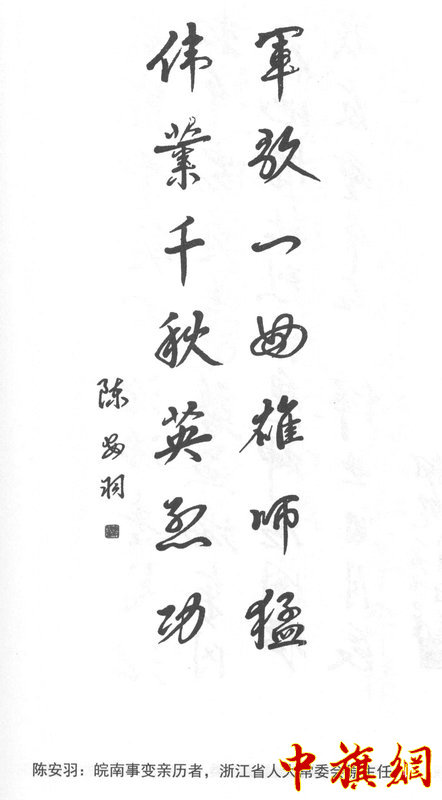 軍歌一曲雄师猛
伟業千秋英烈功
陈安羽
陈安羽：皖南事变亲历者，浙江省人大常委会副主任
中旗網